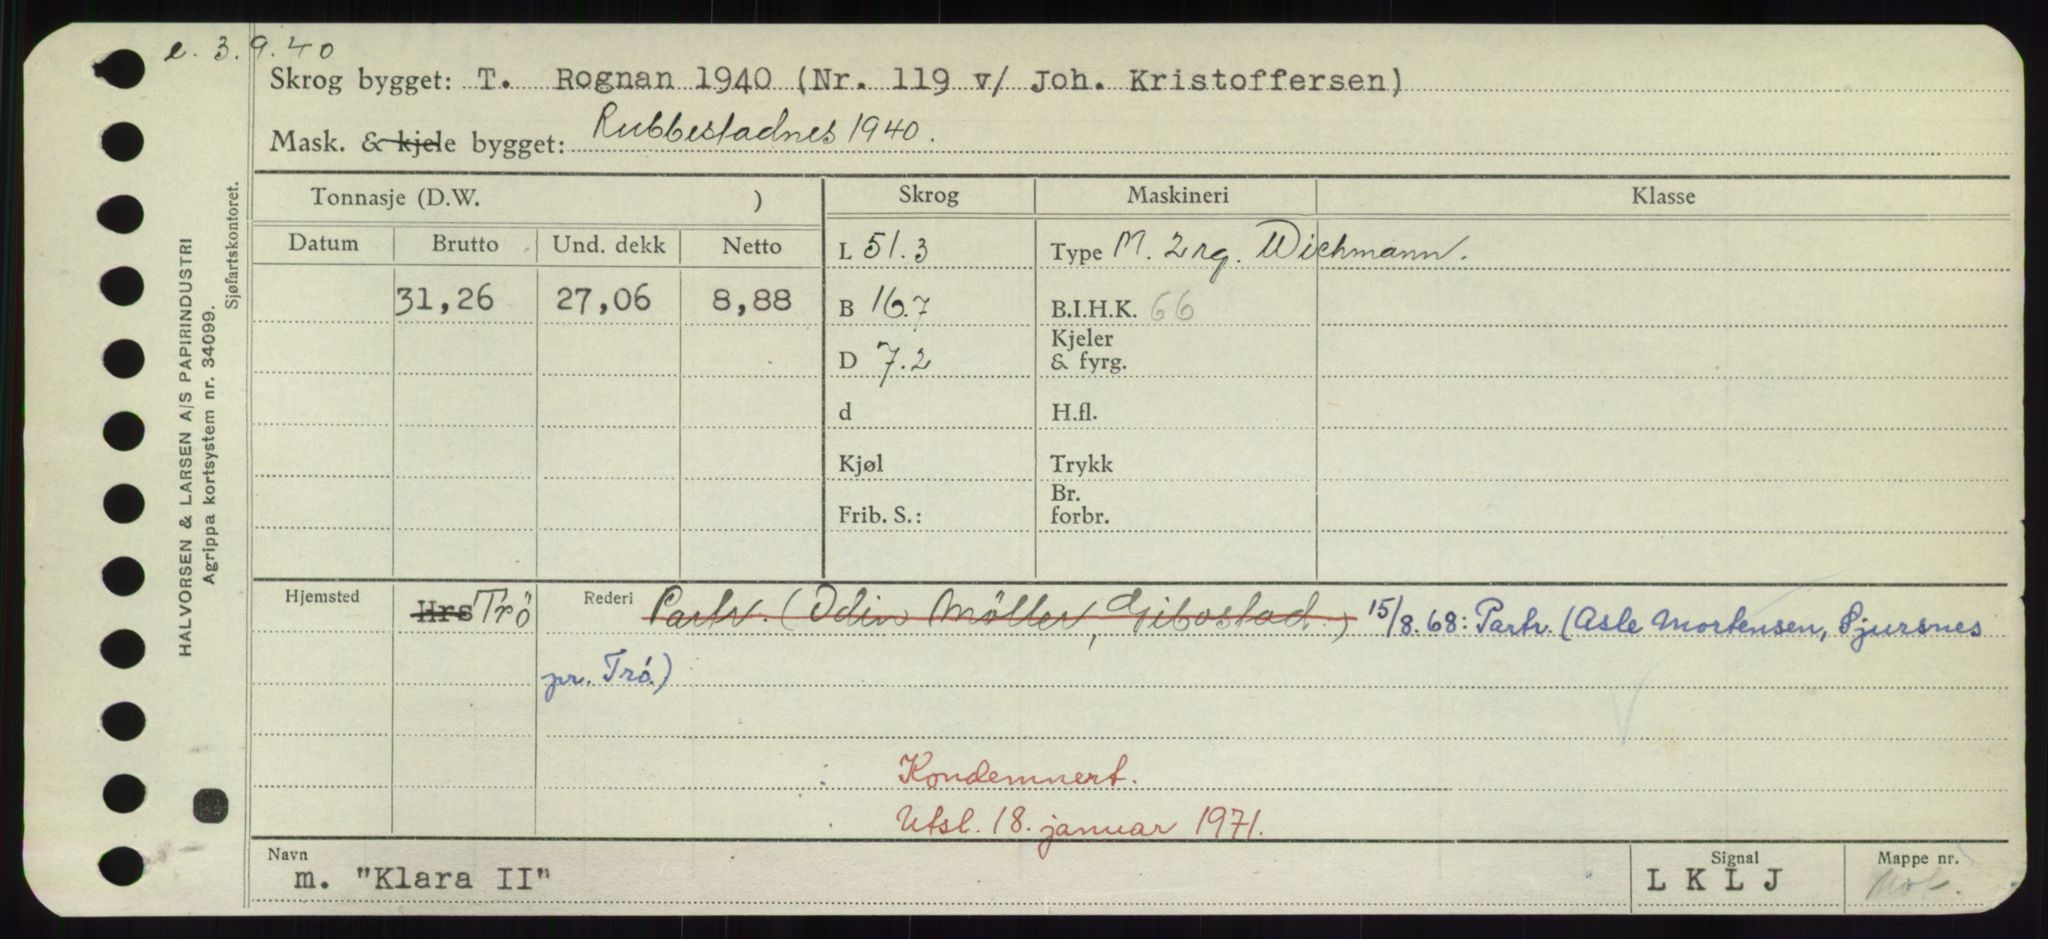 e. 3.9.40
Skrog bygget: T. Rognan 1940 (Nr. 119 v/ Joh. Kristoffersen)
Mask. & kjele bygget: Rubbestadnes 1940.
HALVORSEN & LARSEN A/S PAPIRINDUSTRI
Agrippa kortsystem nr. 34099.
Sjøfartskontoret.
Tonnasje (D.W. ) Skrog Maskineri Klasse
Datum Brutto Und. dekk Netto L 51.3 Type M. 2 rg. Wichmann.
31,26 27,06 8,88 B 16.7 B.I.H.K. 66
D 7.2 Kjeler & fyrg.
d H.fl.
Kjøl Trykk
Frib. S.: Br. forbr.
Hjemsted Hrs Trö Rederi Partr. (Odin Møller, Gibostad.) 15/8.68: Partr. (Asle Mortensen, Sjursnes
pr. Trö.)
Kondemnert.
Utsl. 18. januar 1971.
Navn Signal Mappe nr.
m. "Klara II" L K L J Mot.